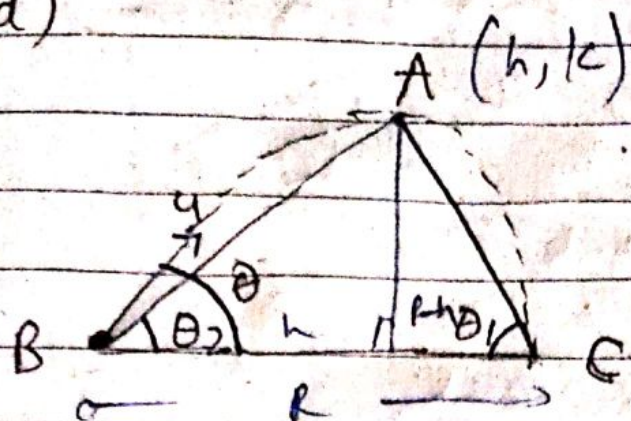 d)
A (h, k)
u
θ
B θ₂ h R-h θ₁ C
R